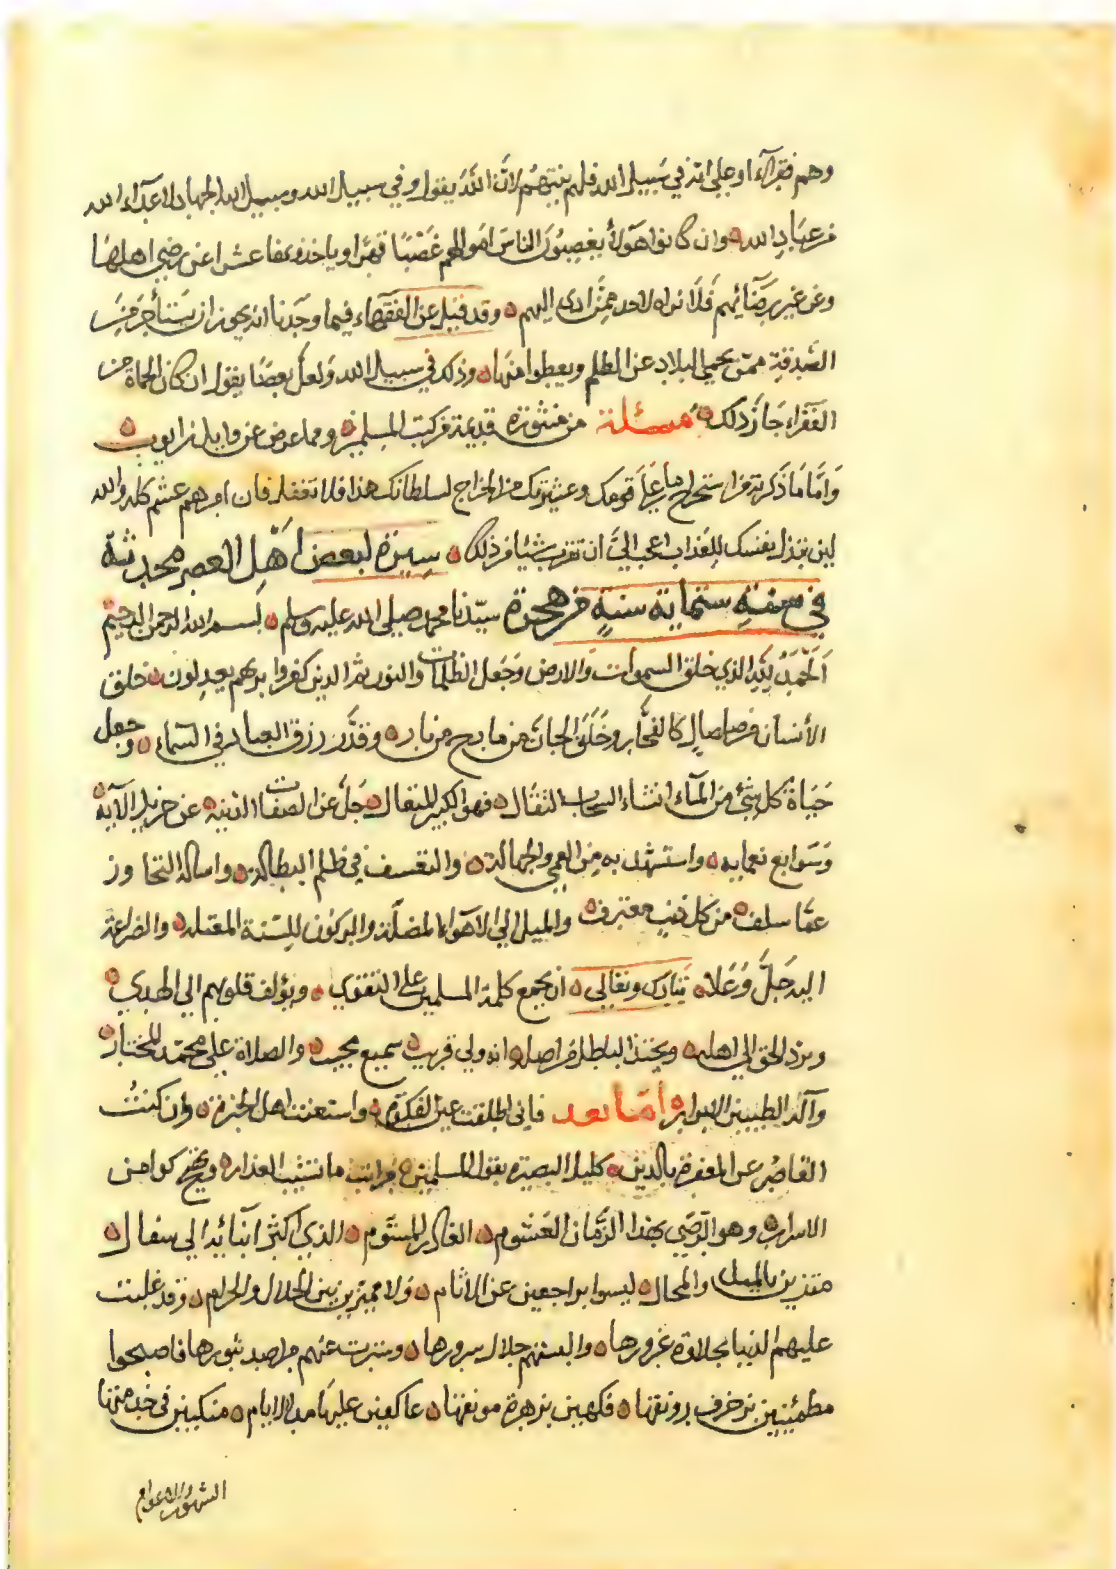 وهم فقرآء او جلي انه في سبيل الله فلم ينتهم لانَّ اللهَ يقول وفي سبيل الله وسبيل الله الجهاد لاعدآء الله
من عبادِ الله وان كانوا هَوَلآءِ يغصبُونَ الناسَ اموالهم غَصْبًا قهرًا وياخذونها عشرا عن رضي اهلها
وعن غير رِضَآئهم فَلَا نراه لاحد ممَّن ادى اليهم وقد قيل عن الفقهاء فيما وجدنا انه يجوز ان يستأجر من
الصَّدقةِ ممّن يحمي البلاد عن الظلم ويعطوا منها وذلك في سبيل الله ولعلَّ بعضًا يقول ان كان الحماة من
الفقراء جَازَ ذلك مسئلة من منثورة قديمة من كتب المسلمين ومما عرض عن وايل بن ايوب
وَامَّا مَا ذكرته من استخراج ما على قومك وعشيرتك من الخراج لسلطانك هذا فلا تفعل فان امرهم عشم كله والله
لين تبذل نفسك للعَذاب احب اليَّ ان تقرب شيئا من ذلك سيرة لبعض اهل العصر محدثة
في سنةِ ستماية سنةٍ من هجرة سيّدنا محمد صلى الله عليه وسلم بسم الله الرحمن الرحيم
اَلْحَمْدُ لِلّهِ الذي خلق السموات والارض وَجَعل الظلمات والنور ثم الذين كفروا بربهم يعدلون خلق
الأنسان من صلصالٍ كالفخَّار وخَلَقَ الجانَ من مارج من نار وقدَّر رزق العباد في السّماء وجعل
حَيَاةَ كل شيٌ من المآء انشاء السحاب الثقال فهو الكبير المتعال جَلَّ عن الصفات الدنية عن جزيل الآيه
وَسَوابع نعمايه واستهْد به من العمى والجهالة والتعسف في ظلم البطالة واساله التجاوز
عمّا سلف من كل ذنب معترف والميل الى الاهوآء المضلّة والركون للسّنة المقتله والضراعة
اليه جَلَّ وَعَلا تبارك وتعالى ان يجمع كلمة المسلمين على التقوى ويؤلف قلوبهم الى الهدى
ويردّ الحق الى اهله ويجتذ الباطل من اصله انه ولي قريب سميع مجيب والصلاة على محمّد المختار
وآله الطيبين الابرار أمّا بعد فاني اطلقت عين الفكرة واستعنت اهل الخبرة وان كنتُ
القاصُر عن المعرفة بالدين كليل البصيرة بقول المسلمين فرايت ما تشيب العذار ويخرج كوامن
الاسرار وهو الرَّضَى بهذا الزَّمان الغَشوم الغادر المشؤم الذي اكثر ابنآئه الى سفال
متفرين بالميل والمحال ليسوا براجعين عن الآثام وَلا مميّزين بين الحلال والحرام وقد غلبت
عليهم الدنيا بحلاوة غرورها والبستهم جلال سرورها وسترت عنهم مراصد ثبورها فاصبحوا
مطمئنين بزخرف رونقها فكهين بزهرة مونقها عاكفين عليها مدا الايام منكبين في خدمتها
الشهور والاعوام